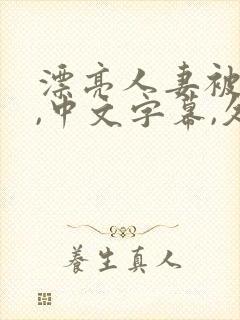 漂亮人妻被
,中文字幕,久
養生真人